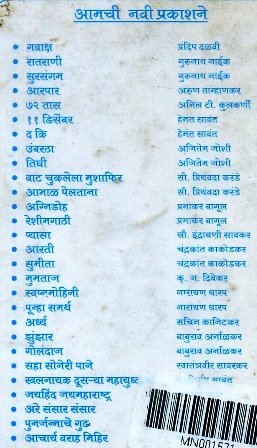 आमची नवी प्रकाशने
• गवाक्ष प्रदिप दळवी
• रातराणी गुरुनाथ नाईक
• सुरसंगम गुरुनाथ नाईक
• आरपार अरुण ताम्हाणकर
• ७२ तास अनिल टी. कुलकर्णी
• ११ डिसेंबर हेमंत सावंत
• द कि हेमंत सावंत
• उंबरठा अजितेम जोशी
• तिधी अजितेम जोशी
• वाट चुकलेला मुशाफिर सौ. प्रियंवदा करंडे
• आभाळ पेलताना सौ. प्रियंवदा करंडे
• अग्निडोह प्रभाकर बागूल
• रेशीमगाठी प्रभाकर बागूल
• प्यासा सौ. इंद्रायणी सावकर
• आरती चंद्रकांत काकोडकर
• सुमीता चंद्रकांत काकोडकर
• मुमताज कृ. ज. दिवेकर
• स्वप्नमोहिनी नारायण धारप
• पून्हा समर्थ नारायण धारप
• अर्ध्य सचिन कानिटकर
• झुंझार बाबुराव अर्नाळकर
• गोलंदाज बाबुराव अर्नाळकर
• सहा सोनेरी पाने स्वातंत्रवीर सावरकर
• खलनायक दूसऱ्या महायुध्द सावंत
• जयहिंद जयमहाराष्ट्र
• अरे संसार संसार
• पुनर्जन्माचे गुढ
• आचार्य वराह मिहिर
MN001571